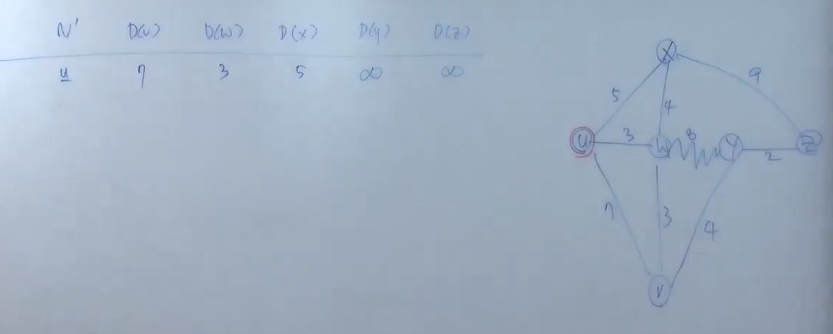 N' D(v) D(w) D(x) D(y) D(z)
u 7 3 5 ∞ ∞
x
5 4 9
u 3 w 8 y 2 z
7 3 4
v